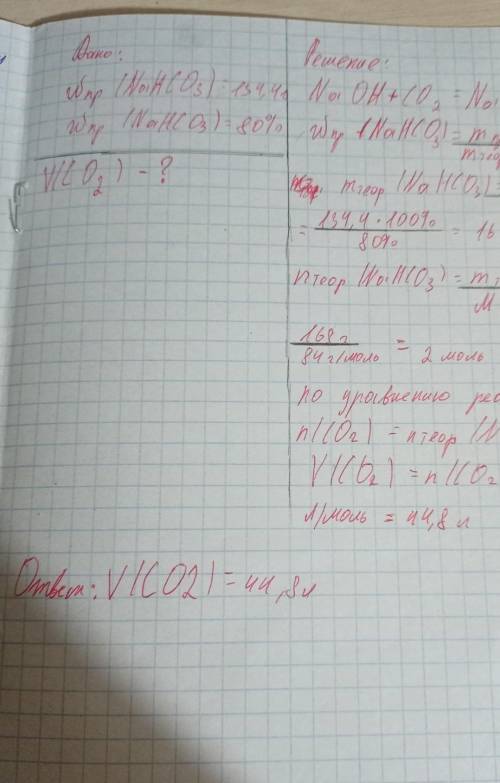 Дано:
Wпр (NaHCO3) = 134,4г
Wпр (NaHCO3) = 80%
V(CO2) - ?
Решение:
NaOH + CO2 = Na
Wпр (NaHCO3) = m
mтеор
mтеор (NaHCO3)
= 134,4 · 100% / 80% = 16
nтеор (NaHCO3) = m
M
168г / 84 г/моль = 2 моль
по уравнению реа
n(CO2) = nтеор (N
V(CO2) = n(CO2
л/моль = 44,8 л
Ответ: V(CO2) = 44,8л